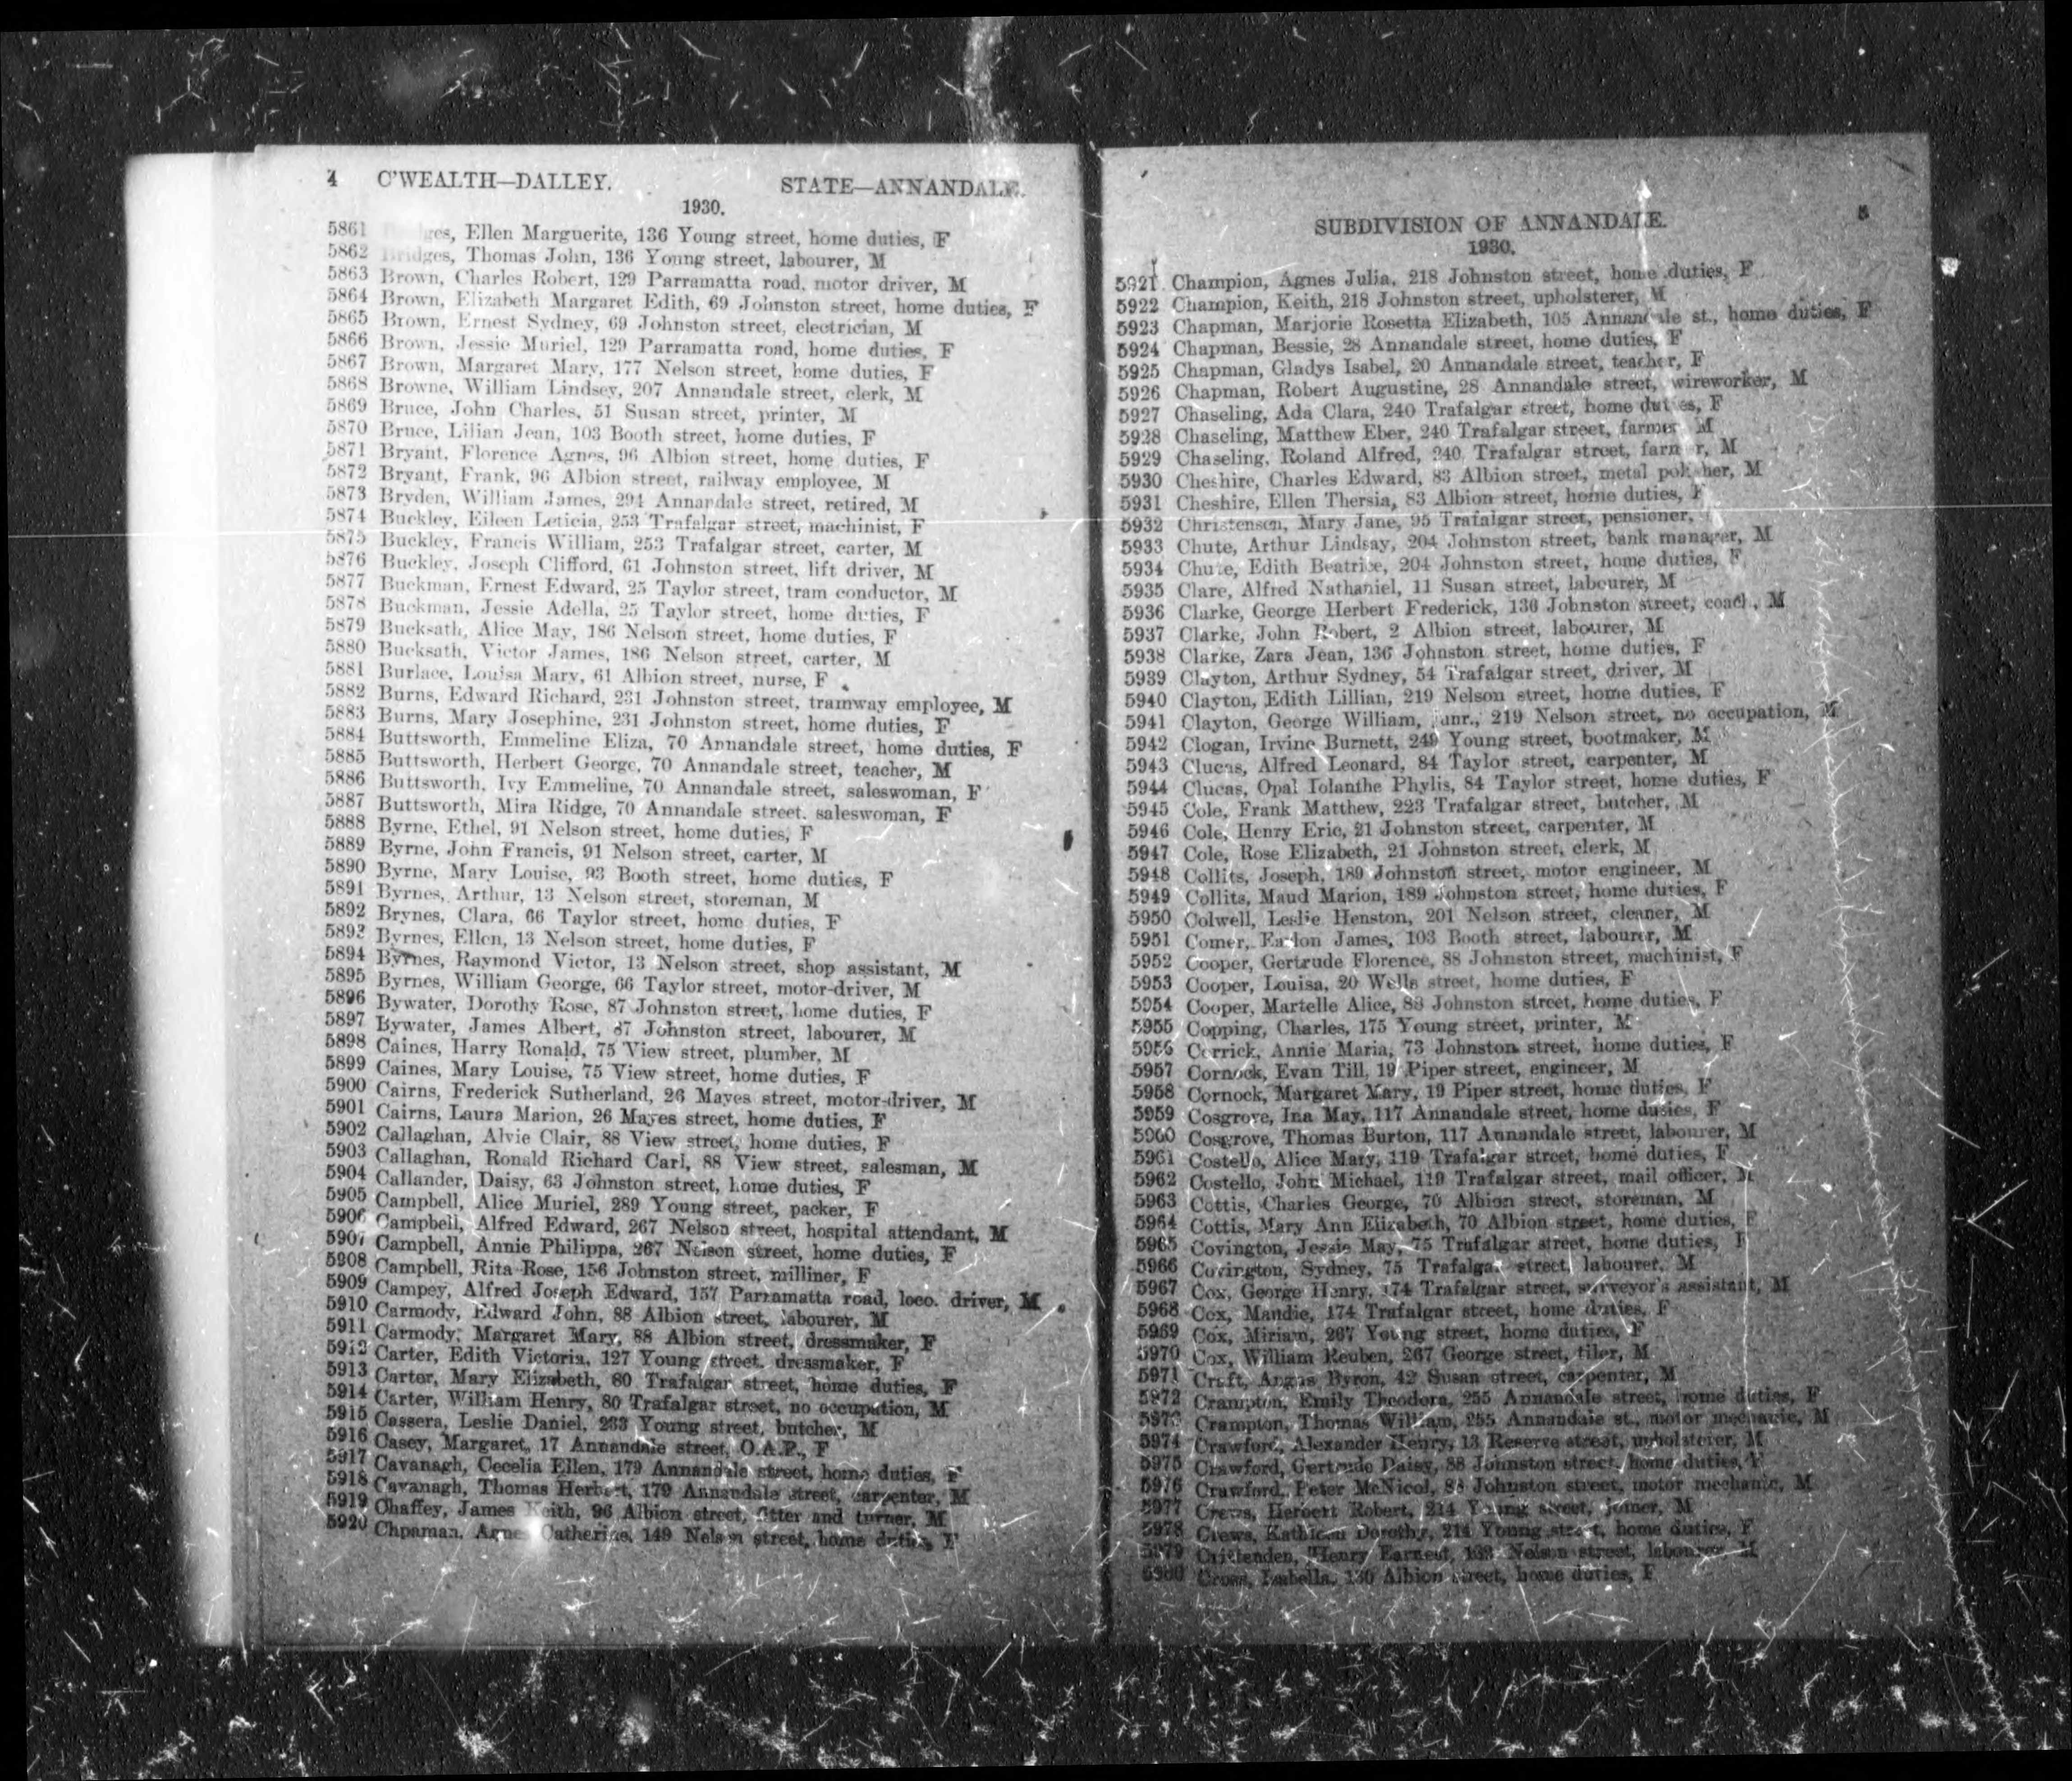 4 C'WEALTH—DALLEY. STATE—ANNANDALE.
1930.
5861 Ellen Marguerite, 136 Young street, home duties, F
5862 Bridges, Thomas John, 136 Young street, labourer, M
5863 Brown, Charles Robert, 129 Parramatta road, motor driver, M
5864 Brown, Elizabeth Margaret Edith, 69 Johnston street, home duties, F
5865 Brown, Ernest Sydney, 69 Johnston street, electrician, M
5866 Brown, Jessie Muriel, 129 Parramatta road, home duties, F
5867 Brown, Margaret Mary, 177 Nelson street, home duties, F
5868 Browne, William Lindsey, 207 Annandale street, clerk, M
5869 Bruce, John Charles, 51 Susan street, printer, M
5870 Bruce, Lilian Jean, 103 Booth street, home duties, F
5871 Bryant, Florence Agnes, 96 Albion street, home duties, F
5872 Bryant, Frank, 96 Albion street, railway employee, M
5873 Bryden, William James, 294 Annandale street, retired, M
5874 Buckley, Eileen Leticia, 253 Trafalgar street, machinist, F
5875 Buckley, Francis William, 253 Trafalgar street, carter, M
5876 Buckley, Joseph Clifford, 61 Johnston street, lift driver, M
5877 Buckman, Ernest Edward, 25 Taylor street, tram conductor, M
5878 Buckman, Jessie Adella, 25 Taylor street, home duties, F
5879 Bucksath, Alice May, 186 Nelson street, home duties, F
5880 Bucksath, Victor James, 186 Nelson street, carter, M
5881 Burlace, Louisa Mary, 61 Albion street, nurse, F
5882 Burns, Edward Richard, 231 Johnston street, tramway employee, M
5883 Burns, Mary Josephine, 231 Johnston street, home duties, F
5884 Buttsworth, Emmeline Eliza, 70 Annandale street, home duties, F
5885 Buttsworth, Herbert George, 70 Annandale street, teacher, M
5886 Buttsworth, Ivy Emmeline, 70 Annandale street, saleswoman, F
5887 Buttsworth, Mira Ridge, 70 Annandale street. saleswoman, F
5888 Byrne, Ethel, 91 Nelson street, home duties, F
5889 Byrne, John Francis, 91 Nelson street, carter, M
5890 Byrne, Mary Louise, 93 Booth street, home duties, F
5891 Byrnes, Arthur, 13 Nelson street, storeman, M
5892 Brynes, Clara, 66 Taylor street, home duties, F
5893 Byrnes, Ellen, 13 Nelson street, home duties, F
5894 Byrnes, Raymond Victor, 13 Nelson street, shop assistant, M
5895 Byrnes, William George, 66 Taylor street, motor-driver, M
5896 Bywater, Dorothy Rose, 87 Johnston street, home duties, F
5897 Bywater, James Albert, 87 Johnston street, labourer, M
5898 Caines, Harry Ronald, 75 View street, plumber, M
5899 Caines, Mary Louise, 75 View street, home duties, F
5900 Cairns, Frederick Sutherland, 26 Mayes street, motor-driver, M
5901 Cairns, Laura Marion, 26 Mayes street, home duties, F
5902 Callaghan, Alvie Clair, 88 View street, home duties, F
5903 Callaghan, Ronald Richard Carl, 88 View street, salesman, M
5904 Callander, Daisy, 63 Johnston street, home duties, F
5905 Campbell, Alice Muriel, 289 Young street, packer, F
5906 Campbell, Alfred Edward, 267 Nelson street, hospital attendant, M
5907 Campbell, Annie Philippa, 267 Nelson street, home duties, F
5908 Campbell, Rita Rose, 156 Johnston street, milliner, F
5909 Campey, Alfred Joseph Edward, 157 Parramatta road, loco. driver, M
5910 Carmody, Edward John, 88 Albion street, labourer, M
5911 Carmody, Margaret Mary, 88 Albion street, dressmaker, F
5912 Carter, Edith Victoria, 127 Young street. dressmaker, F
5913 Carter, Mary Elizabeth, 80 Trafalgar street, home duties, F
5914 Carter, William Henry, 80 Trafalgar street, no occupation, M
5915 Cassera, Leslie Daniel, 233 Young street, butcher, M
5916 Casey, Margaret, 17 Annandale street, O.A.P., F
5917 Cavanagh, Cecelia Ellen, 179 Annandale street, home duties, F
5918 Cavanagh, Thomas Herbert, 179 Annandale street, carpenter, M
5919 Chaffey, James Keith, 96 Albion street, fitter and turner, M
5920 Chpaman, Agnes Catherine, 149 Nelson street, home duties, F
SUBDIVISION OF ANNANDALE. 5
1930.
5921 Champion, Agnes Julia, 218 Johnston street, home duties, F
5922 Champion, Keith, 218 Johnston street, upholsterer, M
5923 Chapman, Marjorie Rosetta Elizabeth, 105 Annandale st., home duties, F
5924 Chapman, Bessie, 28 Annandale street, home duties, F
5925 Chapman, Gladys Isabel, 20 Annandale street, teacher, F
5926 Chapman, Robert Augustine, 28 Annandale street, wireworker, M
5927 Chaseling, Ada Clara, 240 Trafalgar street, home duties, F
5928 Chaseling, Matthew Eber, 240 Trafalgar street, farmer, M
5929 Chaseling, Roland Alfred, 240 Trafalgar street, farmer, M
5930 Cheshire, Charles Edward, 83 Albion street, metal polisher, M
5931 Cheshire, Ellen Thersia, 83 Albion street, home duties, F
5932 Christensen, Mary Jane, 95 Trafalgar street, pensioner,
5933 Chute, Arthur Lindsay, 204 Johnston street, bank manager, M
5934 Chute, Edith Beatrice, 204 Johnston street, home duties, F
5935 Clare, Alfred Nathaniel, 11 Susan street, labourer, M
5936 Clarke, George Herbert Frederick, 136 Johnston street, M
5937 Clarke, John Robert, 2 Albion street, labourer, M
5938 Clarke, Zara Jean, 136 Johnston street, home duties, F
5939 Clayton, Arthur Sydney, 54 Trafalgar street, driver, M
5940 Clayton, Edith Lillian, 219 Nelson street, home duties, F
5941 Clayton, George William, junr., 219 Nelson street, no occupation, M
5942 Clogan, Irvine Burnett, 249 Young street, bootmaker, M
5943 Clucas, Alfred Leonard, 84 Taylor street, carpenter, M
5944 Clucas, Opal Iolanthe Phylis, 84 Taylor street, home duties, F
5945 Cole, Frank Matthew, 223 Trafalgar street, butcher, M
5946 Cole, Henry Eric, 21 Johnston street, carpenter, M
5947 Cole, Rose Elizabeth, 21 Johnston street, clerk, M
5948 Collits, Joseph, 189 Johnston street, motor engineer, M
5949 Collits, Maud Marion, 189 Johnston street, home duties, F
5950 Colwell, Leslie Henston, 201 Nelson street, cleaner, M
5951 Comer, James, 103 Booth street, labourer, M
5952 Cooper, Gertrude Florence, 88 Johnston street, machinist, F
5953 Cooper, Louisa, 20 Wells street, home duties, F
5954 Cooper, Martelle Alice, 88 Johnston street, home duties, F
5955 Copping, Charles, 175 Young street, printer, M
5956 Corrick, Annie Maria, 73 Johnston street, home duties, F
5957 Cornock, Evan Till, 19 Piper street, engineer, M
5958 Cornock, Margaret Mary, 19 Piper street, home duties, F
5959 Cosgrove, Ina May, 117 Annandale street, home duties, F
5960 Cosgrove, Thomas Burton, 117 Annandale street, labourer, M
5961 Costello, Alice Mary, 119 Trafalgar street, home duties, F
5962 Costello, John Michael, 119 Trafalgar street, mail officer, M
5963 Cottis, Charles George, 70 Albion street, storeman, M
5964 Cottis, Mary Ann Elizabeth, 70 Albion street, home duties, F
5965 Covington, Jessie May, 75 Trafalgar street, home duties, F
5966 Covington, Sydney, 75 Trafalgar street, labourer, M
5967 Cox, George Henry, 174 Trafalgar street, surveyor's assistant, M
5968 Cox, Maudie, 174 Trafalgar street, home duties, F
5969 Cox, Miriam, 267 Young street, home duties, F
5970 Cox, William Reuben, 267 George street, tiler, M
5971 Craft, Angas Byron, 42 Susan street, carpenter, M
5972 Crampton, Emily Theodora, 255 Annandale street, home duties, F
5973 Crampton, Thomas William, 255 Annandale st., motor mechanic, M
5974 Crawford, Alexander Henry, 13 Reserve street, upholsterer, M
5975 Crawford, Gertrude Daisy, 88 Johnston street, home duties, F
5976 Crawford, Peter McNicol, 88 Johnston street, motor mechanic, M
5977 Crews, Herbert Robert, 214 Young street, joiner, M
5978 Crews, Kathleen Dorothy, 214 Young street, home duties, F
5979 Crittenden, Henry Earnest, Nelson street, labourer, M
5980 Cross, Isabella, 130 Albion street, home duties, F